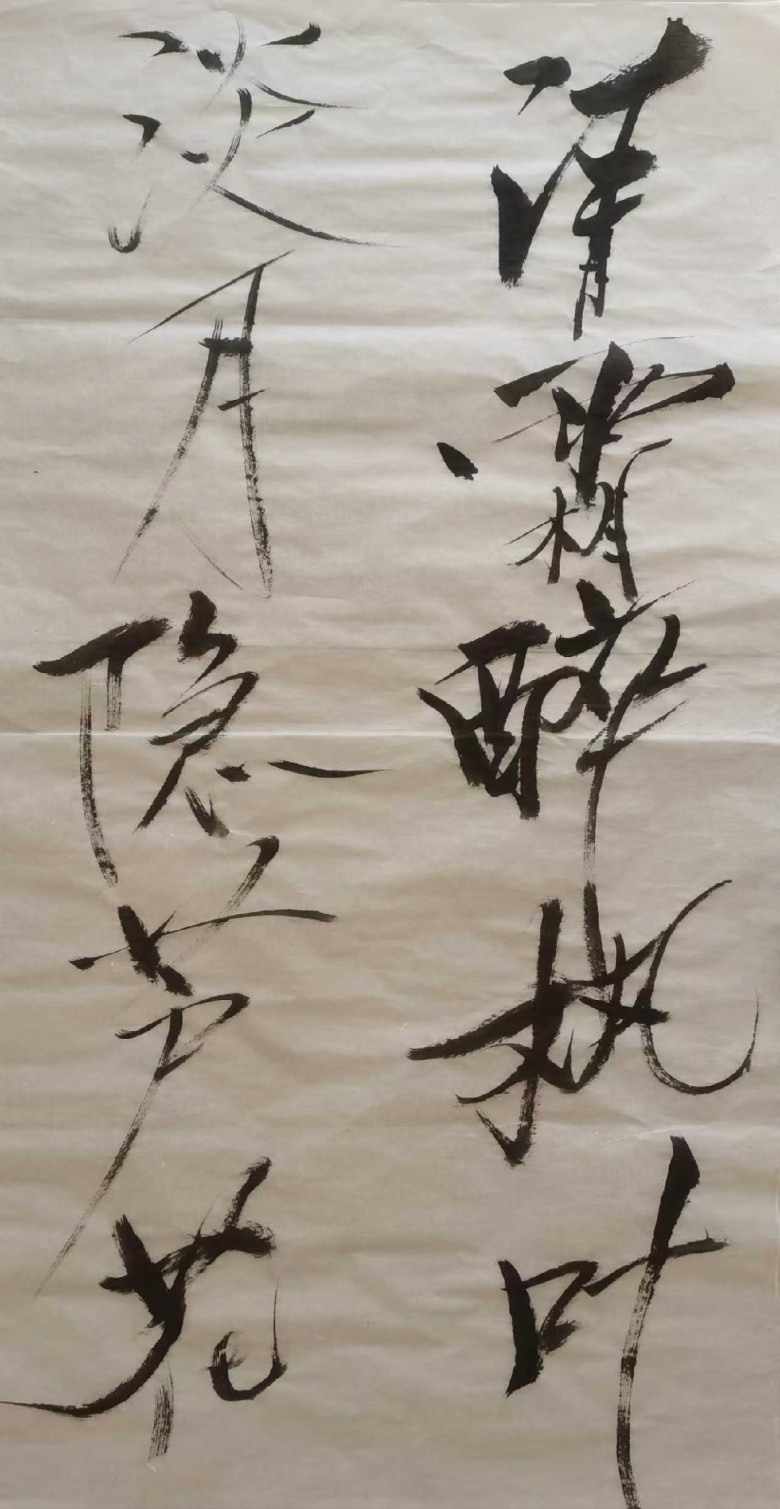 清霜醉枫叶
淡月隐芦花